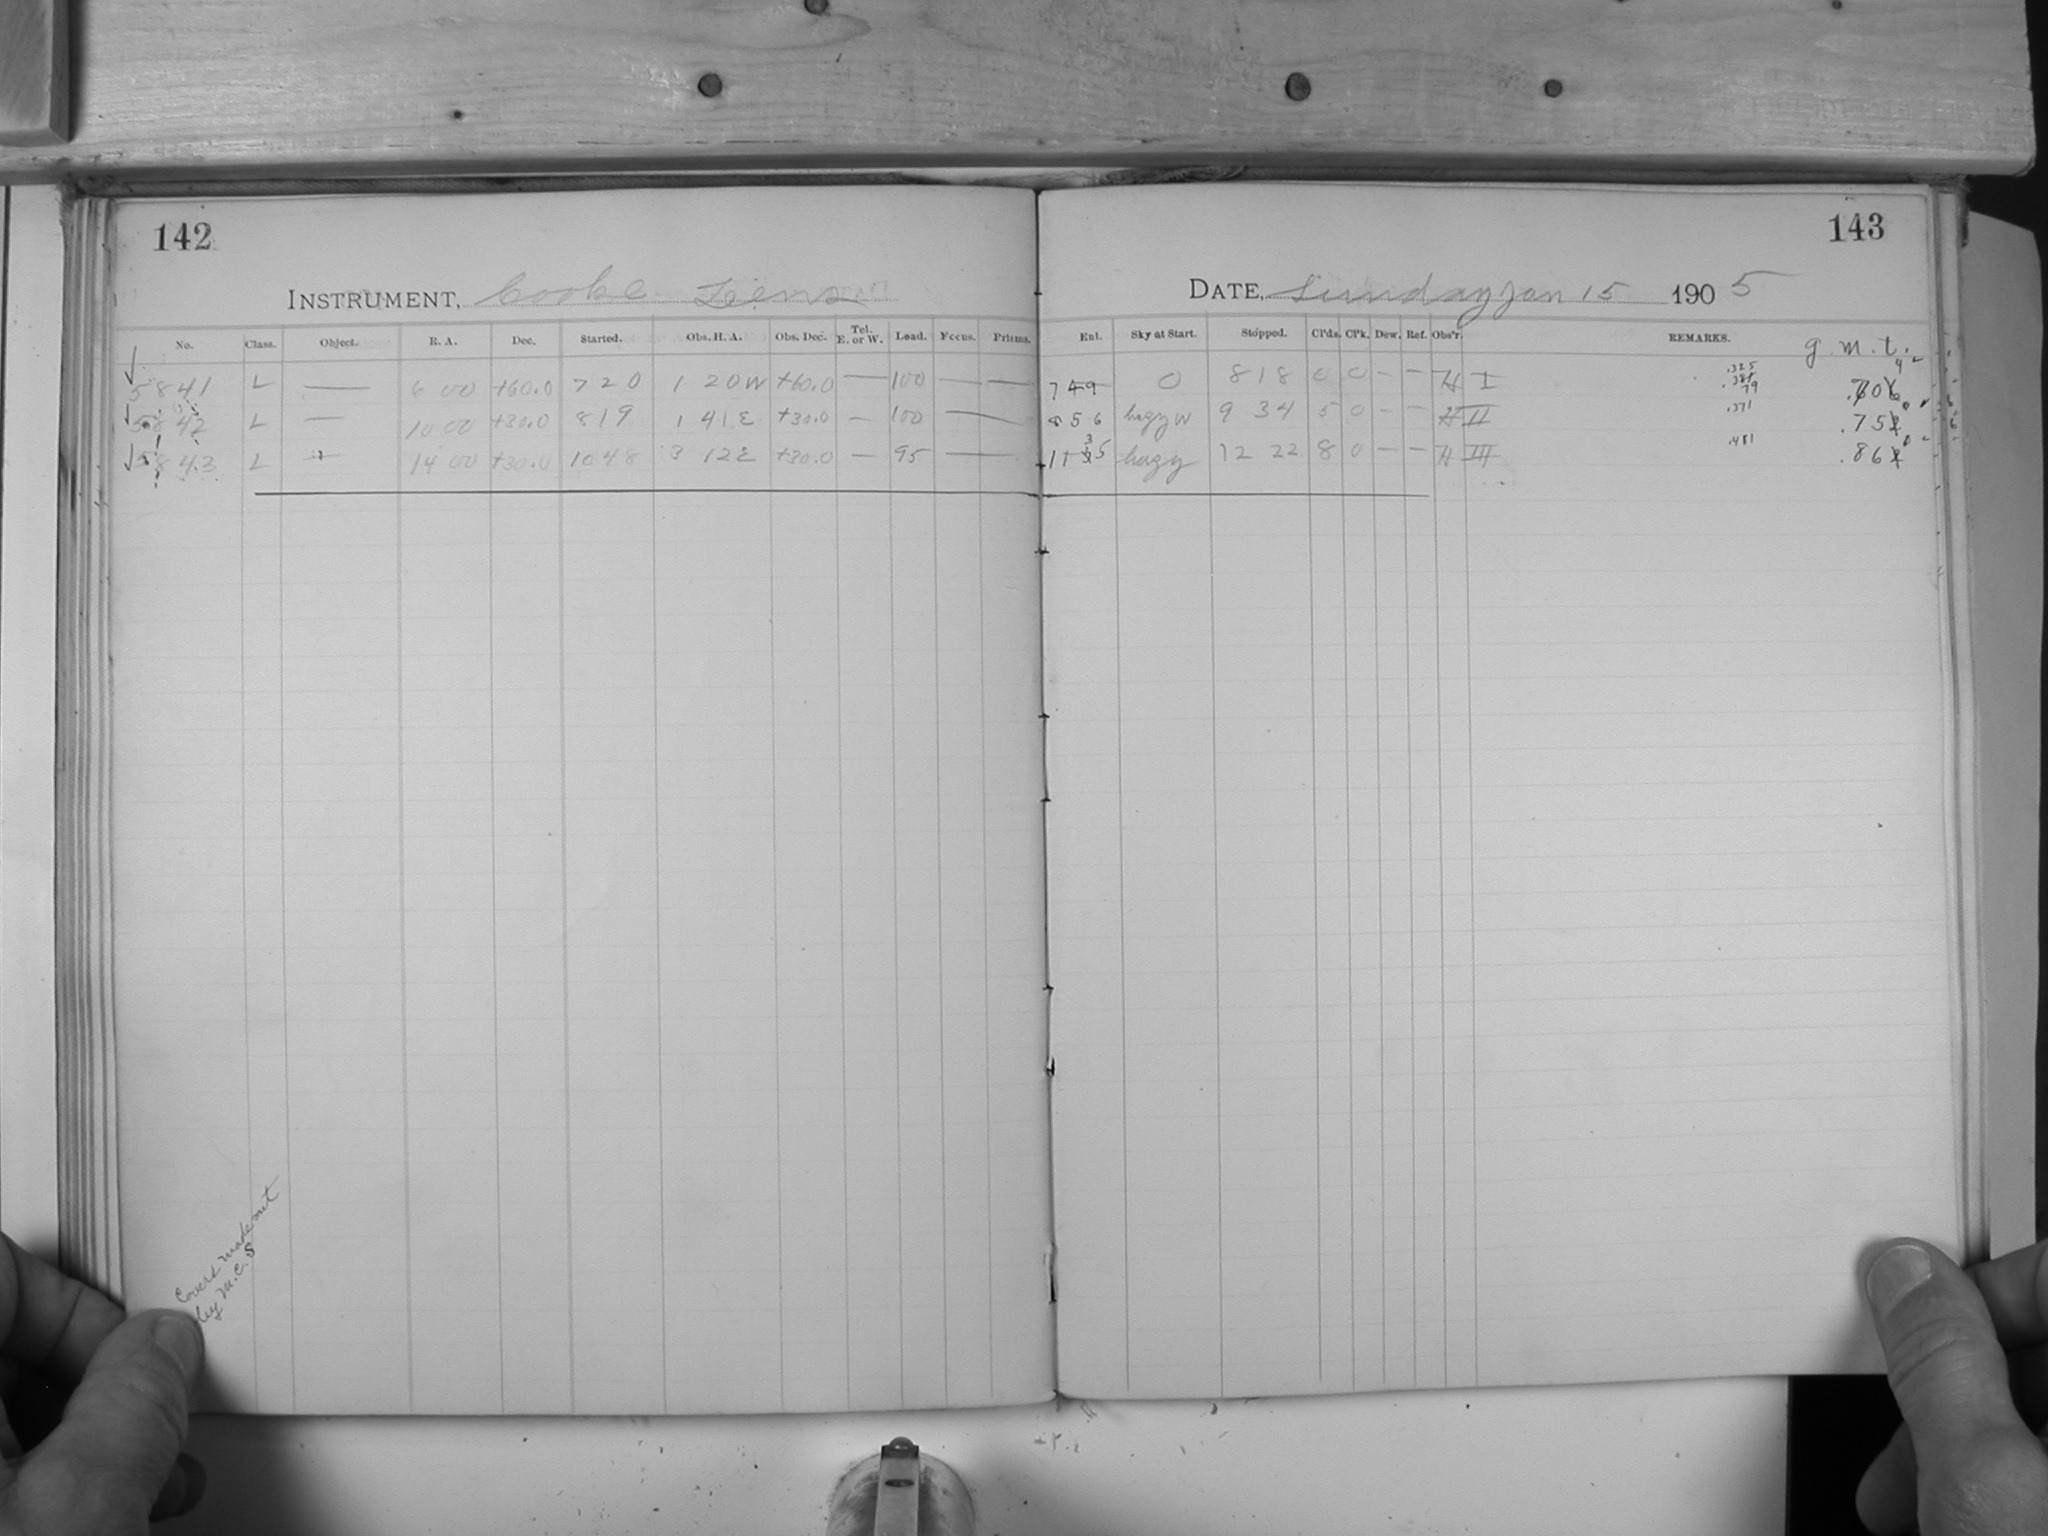 142
INSTRUMENT, Cooke Lens
No. Class. Object. R. A. Dec. Started. Obs. H. A. Obs. Dec. Tel. E. or W. Load. Focus. Prisms.
5841 L — 6 00 +60.0 7 20 1 20W +60.0 — 100 — —
5842 L — 10 00 +30.0 8 19 1 41E +30.0 — 100 —
5843 L 14 00 +30.0 10 48 3 12E +30.0 — 95 —
Covers made out
by M.C.S
143
DATE, Sunday Jan 15 1905
Enl. Sky at Start. Stopped. Cl'ds. Cl'k. Dew. Ref. Obs'r. REMARKS.
g. m. t.
7 49 0 8 18 0 0 — — H I
8 56 hazy W 9 34 5 0 — — H II .371 .75
11 35 hazy 12 22 8 0 — — H III .481 .86